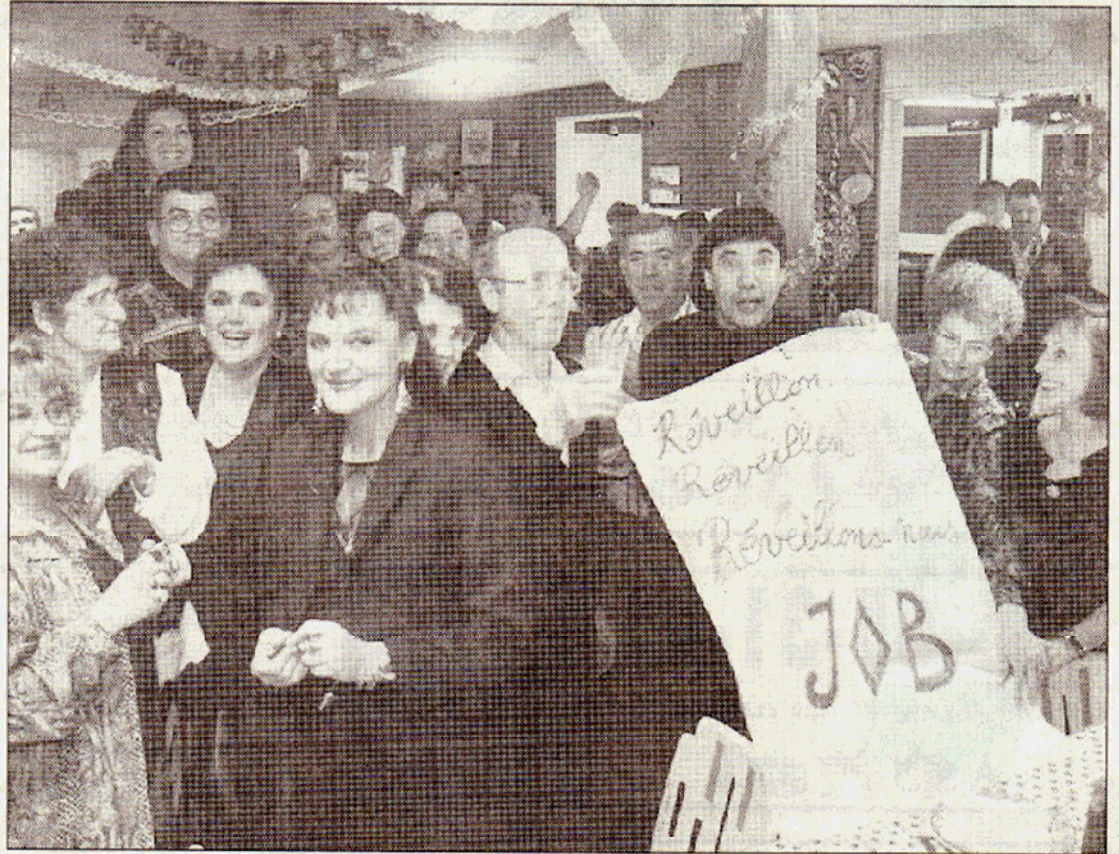 Réveillon
Réveillon
Réveillons nous
JOB